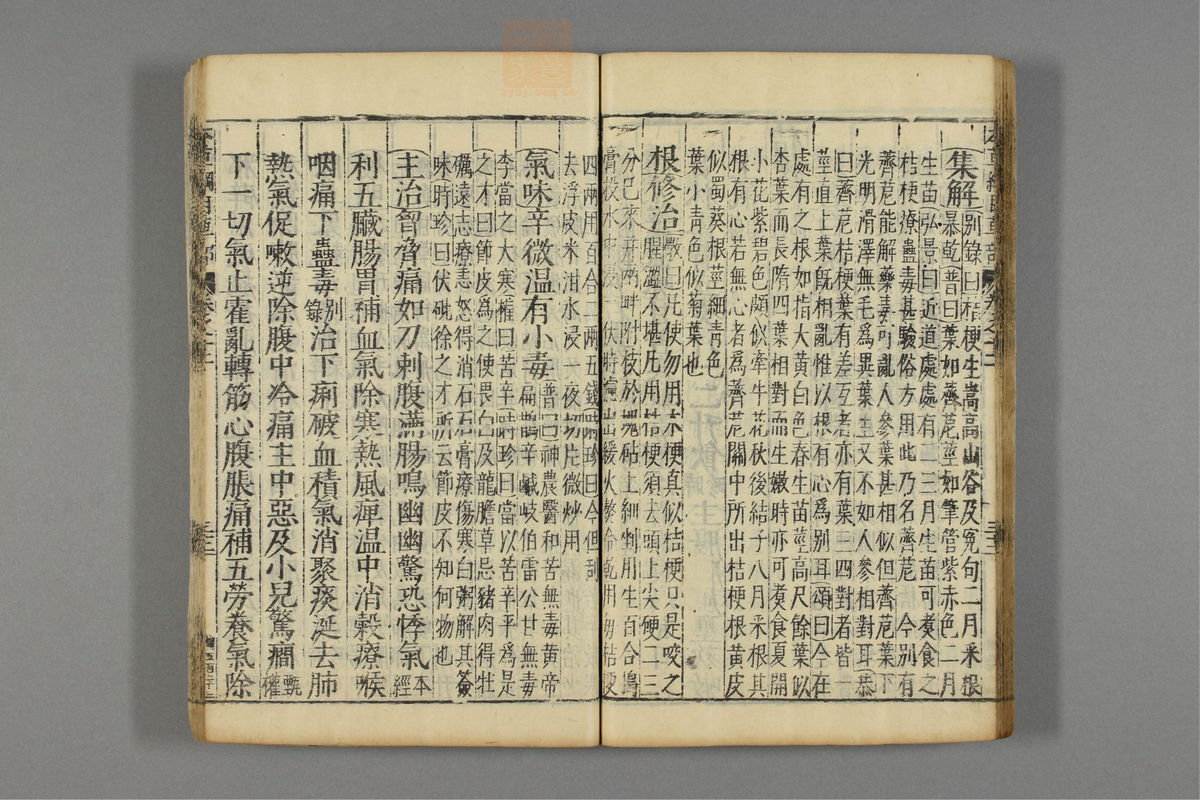 集解別錄曰桔梗生嵩高山谷及冤句二月采根
暴乾普曰葉如薺苨莖如筆管紫赤色二月
生苗弘景曰近道處處有二三月生苗可煮食之
桔梗療蠱毒甚驗俗方用此乃名薺苨今別有
薺苨能解藥毒可亂人參葉甚相似但薺苨葉下
光明滑澤無毛爲異葉生又不如人參相對耳恭
曰薺苨桔梗葉有差互者亦有葉三四對者皆一
莖直上葉旣相亂惟以根有心爲別耳頌曰今在
處有之根如指大黃白色春生苗莖高尺餘葉似
杏葉而長隋四葉相對而生嫩時亦可煮食夏開
小花紫碧色頗似牽牛花秋後結子八月采根其
根有心若無心者爲薺苨關中所出桔梗根黃皮
似蜀葵根莖細靑色
葉小靑色似菊葉也
根修治斆曰凡使勿用木梗真似桔梗只是咬之
腥澀不堪凡用桔梗須去頭上尖硬二三
分已來并兩畔附枝於槐砧上細剉用生百合搗
膏投水中浸一伏時濾出緩火熬令乾用每桔梗
四兩用百合二兩五錢時珍曰今但刮
去浮皮米泔水浸一夜切片微炒用
氣味辛微溫有小毒普曰神農醫和苦無毒黃帝
扁鵲辛鹹岐伯雷公甘無毒
李當之大寒權曰苦辛時珍曰當以苦辛平爲是
之才曰節皮爲之使畏白及龍膽草忌豬肉得牡
礪遠志療恚怒得消石石膏療傷寒白粥解其簽
味時珍曰伏硯徐之才所云節皮不知何物也
主治胷脅痛如刀刺腹滿腸鳴幽幽驚恐悸氣本經
利五臟腸胃補血氣除寒熱風痺溫中消穀療喉
咽痛下蠱毒別錄治下痢破血積氣消聚痰涎去肺
熱氣促嗽逆除腹中冷痛主中惡及小兒驚癎甄權
下一切氣止霍亂轉筋心腹脹痛補五勞養氣除